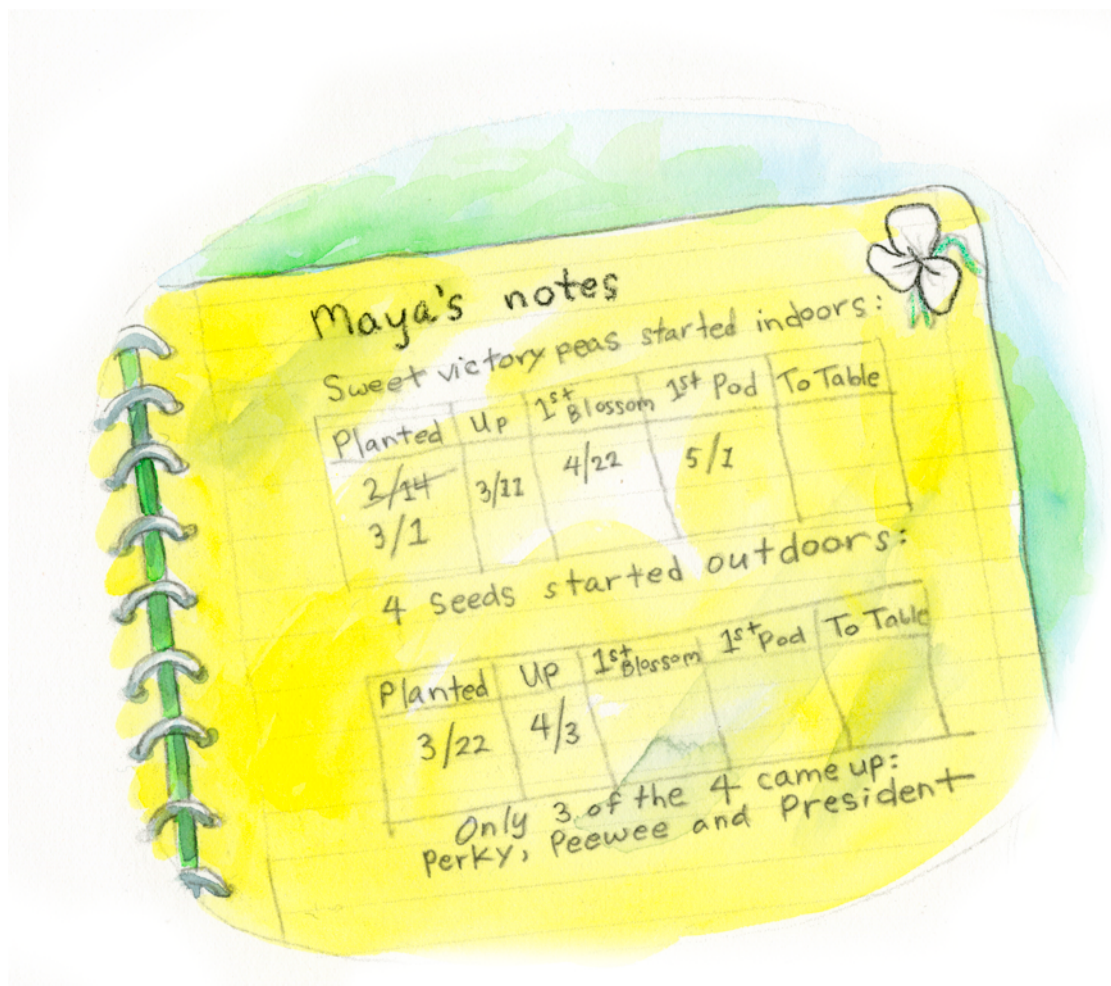 Maya's notes
Sweet victory peas started indoors:
Planted Up 1st Blossom 1st Pod To Table
2/14 3/11 4/22 5/1
3/1
4 Seeds started outdoors:
Planted Up 1st Blossom 1st Pod To Table
3/22 4/3
Only 3 of the 4 came up:
Perky, Peewee and President